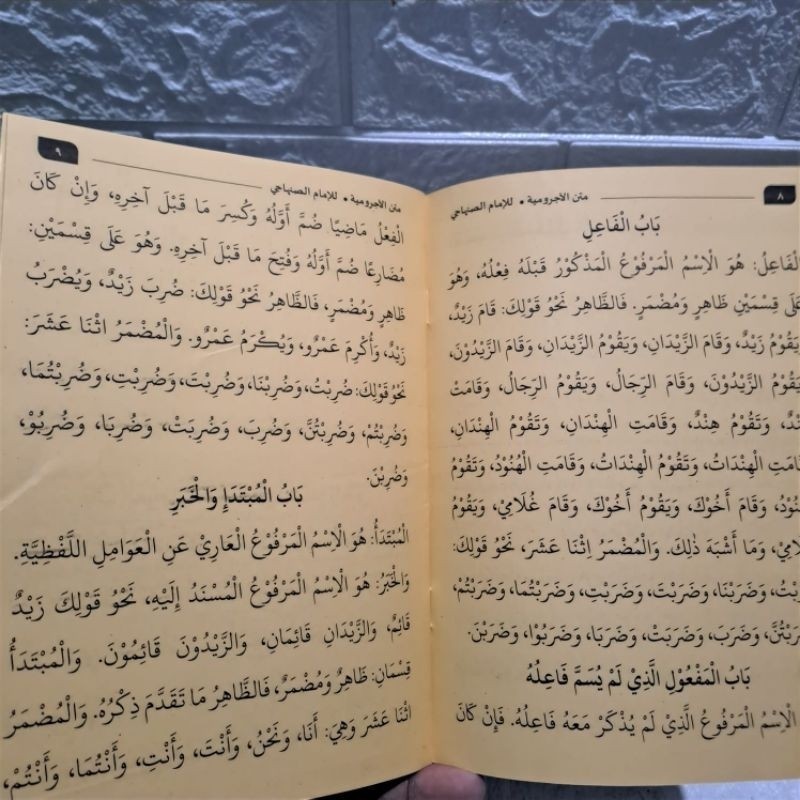 متن الآجرومية • للإمام الصنهاجي ٨
بَابُ الْفَاعِلِ
الْفَاعِلُ: هُوَ الْاِسْمُ الْمَرْفُوْعُ الْمَذْكُوْرُ قَبْلَهُ فِعْلُهُ، وَهُوَ
عَلَى قِسْمَيْنِ ظَاهِرٍ وَمُضْمَرٍ. فَالظَّاهِرُ نَحْوُ قَوْلِكَ: قَامَ زَيْدٌ،
وَيَقُوْمُ زَيْدٌ، وَقَامَ الزَّيْدَانِ، وَيَقُوْمُ الزَّيْدَانِ، وَقَامَ الزَّيْدُوْنَ،
وَيَقُوْمُ الزَّيْدُوْنَ، وَقَامَ الرِّجَالُ، وَيَقُوْمُ الرِّجَالُ، وَقَامَتْ
هِنْدٌ، وَتَقُوْمُ هِنْدٌ، وَقَامَتِ الْهِنْدَانِ، وَتَقُوْمُ الْهِنْدَانِ،
وَقَامَتِ الْهِنْدَاتُ، وَتَقُوْمُ الْهِنْدَاتُ، وَقَامَتِ الْهُنُوْدُ، وَتَقُوْمُ
الْهُنُوْدُ، وَقَامَ أَخُوْكَ، وَيَقُوْمُ أَخُوْكَ، وَقَامَ غُلَامِيْ، وَيَقُوْمُ
غُلَامِيْ، وَمَا أَشْبَهَ ذٰلِكَ. وَالْمُضْمَرُ اِثْنَا عَشَرَ، نَحْوُ قَوْلِكَ:
ضَرَبْتُ، وَضَرَبْنَا، وَضَرَبْتَ، وَضَرَبْتِ، وَضَرَبْتُمَا، وَضَرَبْتُمْ،
وَضَرَبْتُنَّ، وَضَرَبَ، وَضَرَبَتْ، وَضَرَبَا، وَضَرَبُوْا، وَضَرَبْنَ.
بَابُ الْمَفْعُوْلِ الَّذِيْ لَمْ يُسَمَّ فَاعِلُهُ
الْاِسْمُ الْمَرْفُوْعُ الَّذِيْ لَمْ يُذْكَرْ مَعَهُ فَاعِلُهُ. فَإِنْ كَانَ
متن الآجرومية • للإمام الصنهاجي ٩
الْفِعْلُ مَاضِيًا ضُمَّ أَوَّلُهُ وَكُسِرَ مَا قَبْلَ آخِرِهِ، وَإِنْ كَانَ
مُضَارِعًا ضُمَّ أَوَّلُهُ وَفُتِحَ مَا قَبْلَ آخِرِهِ. وَهُوَ عَلَى قِسْمَيْنِ:
ظَاهِرٍ وَمُضْمَرٍ، فَالظَّاهِرُ نَحْوُ قَوْلِكَ: ضُرِبَ زَيْدٌ، وَيُضْرَبُ
زَيْدٌ، وَأُكْرِمَ عَمْرٌو، وَيُكْرَمُ عَمْرٌو. وَالْمُضْمَرُ اثْنَا عَشَرَ:
نَحْوُ قَوْلِكَ: ضُرِبْتُ، وَضُرِبْنَا، وَضُرِبْتَ، وَضُرِبْتِ، وَضُرِبْتُمَا،
وَضُرِبْتُمْ، وَضُرِبْتُنَّ، وَضُرِبَ، وَضُرِبَتْ، وَضُرِبَا، وَضُرِبُوْا،
وَضُرِبْنَ.
بَابُ الْمُبْتَدَإِ وَالْخَبَرِ
الْمُبْتَدَأُ: هُوَ الْاِسْمُ الْمَرْفُوْعُ الْعَارِيْ عَنِ الْعَوَامِلِ اللَّفْظِيَّةِ.
وَالْخَبَرُ: هُوَ الْاِسْمُ الْمَرْفُوْعُ الْمُسْنَدُ إِلَيْهِ، نَحْوُ قَوْلِكَ زَيْدٌ
قَائِمٌ، وَالزَّيْدَانِ قَائِمَانِ، وَالزَّيْدُوْنَ قَائِمُوْنَ. وَالْمُبْتَدَأُ
قِسْمَانِ: ظَاهِرٌ وَمُضْمَرٌ، فَالظَّاهِرُ مَا تَقَدَّمَ ذِكْرُهُ. وَالْمُضْمَرُ
اثْنَا عَشَرَ وَهِيَ: أَنَا، وَنَحْنُ، وَأَنْتَ، وَأَنْتِ، وَأَنْتُمَا، وَأَنْتُمْ،